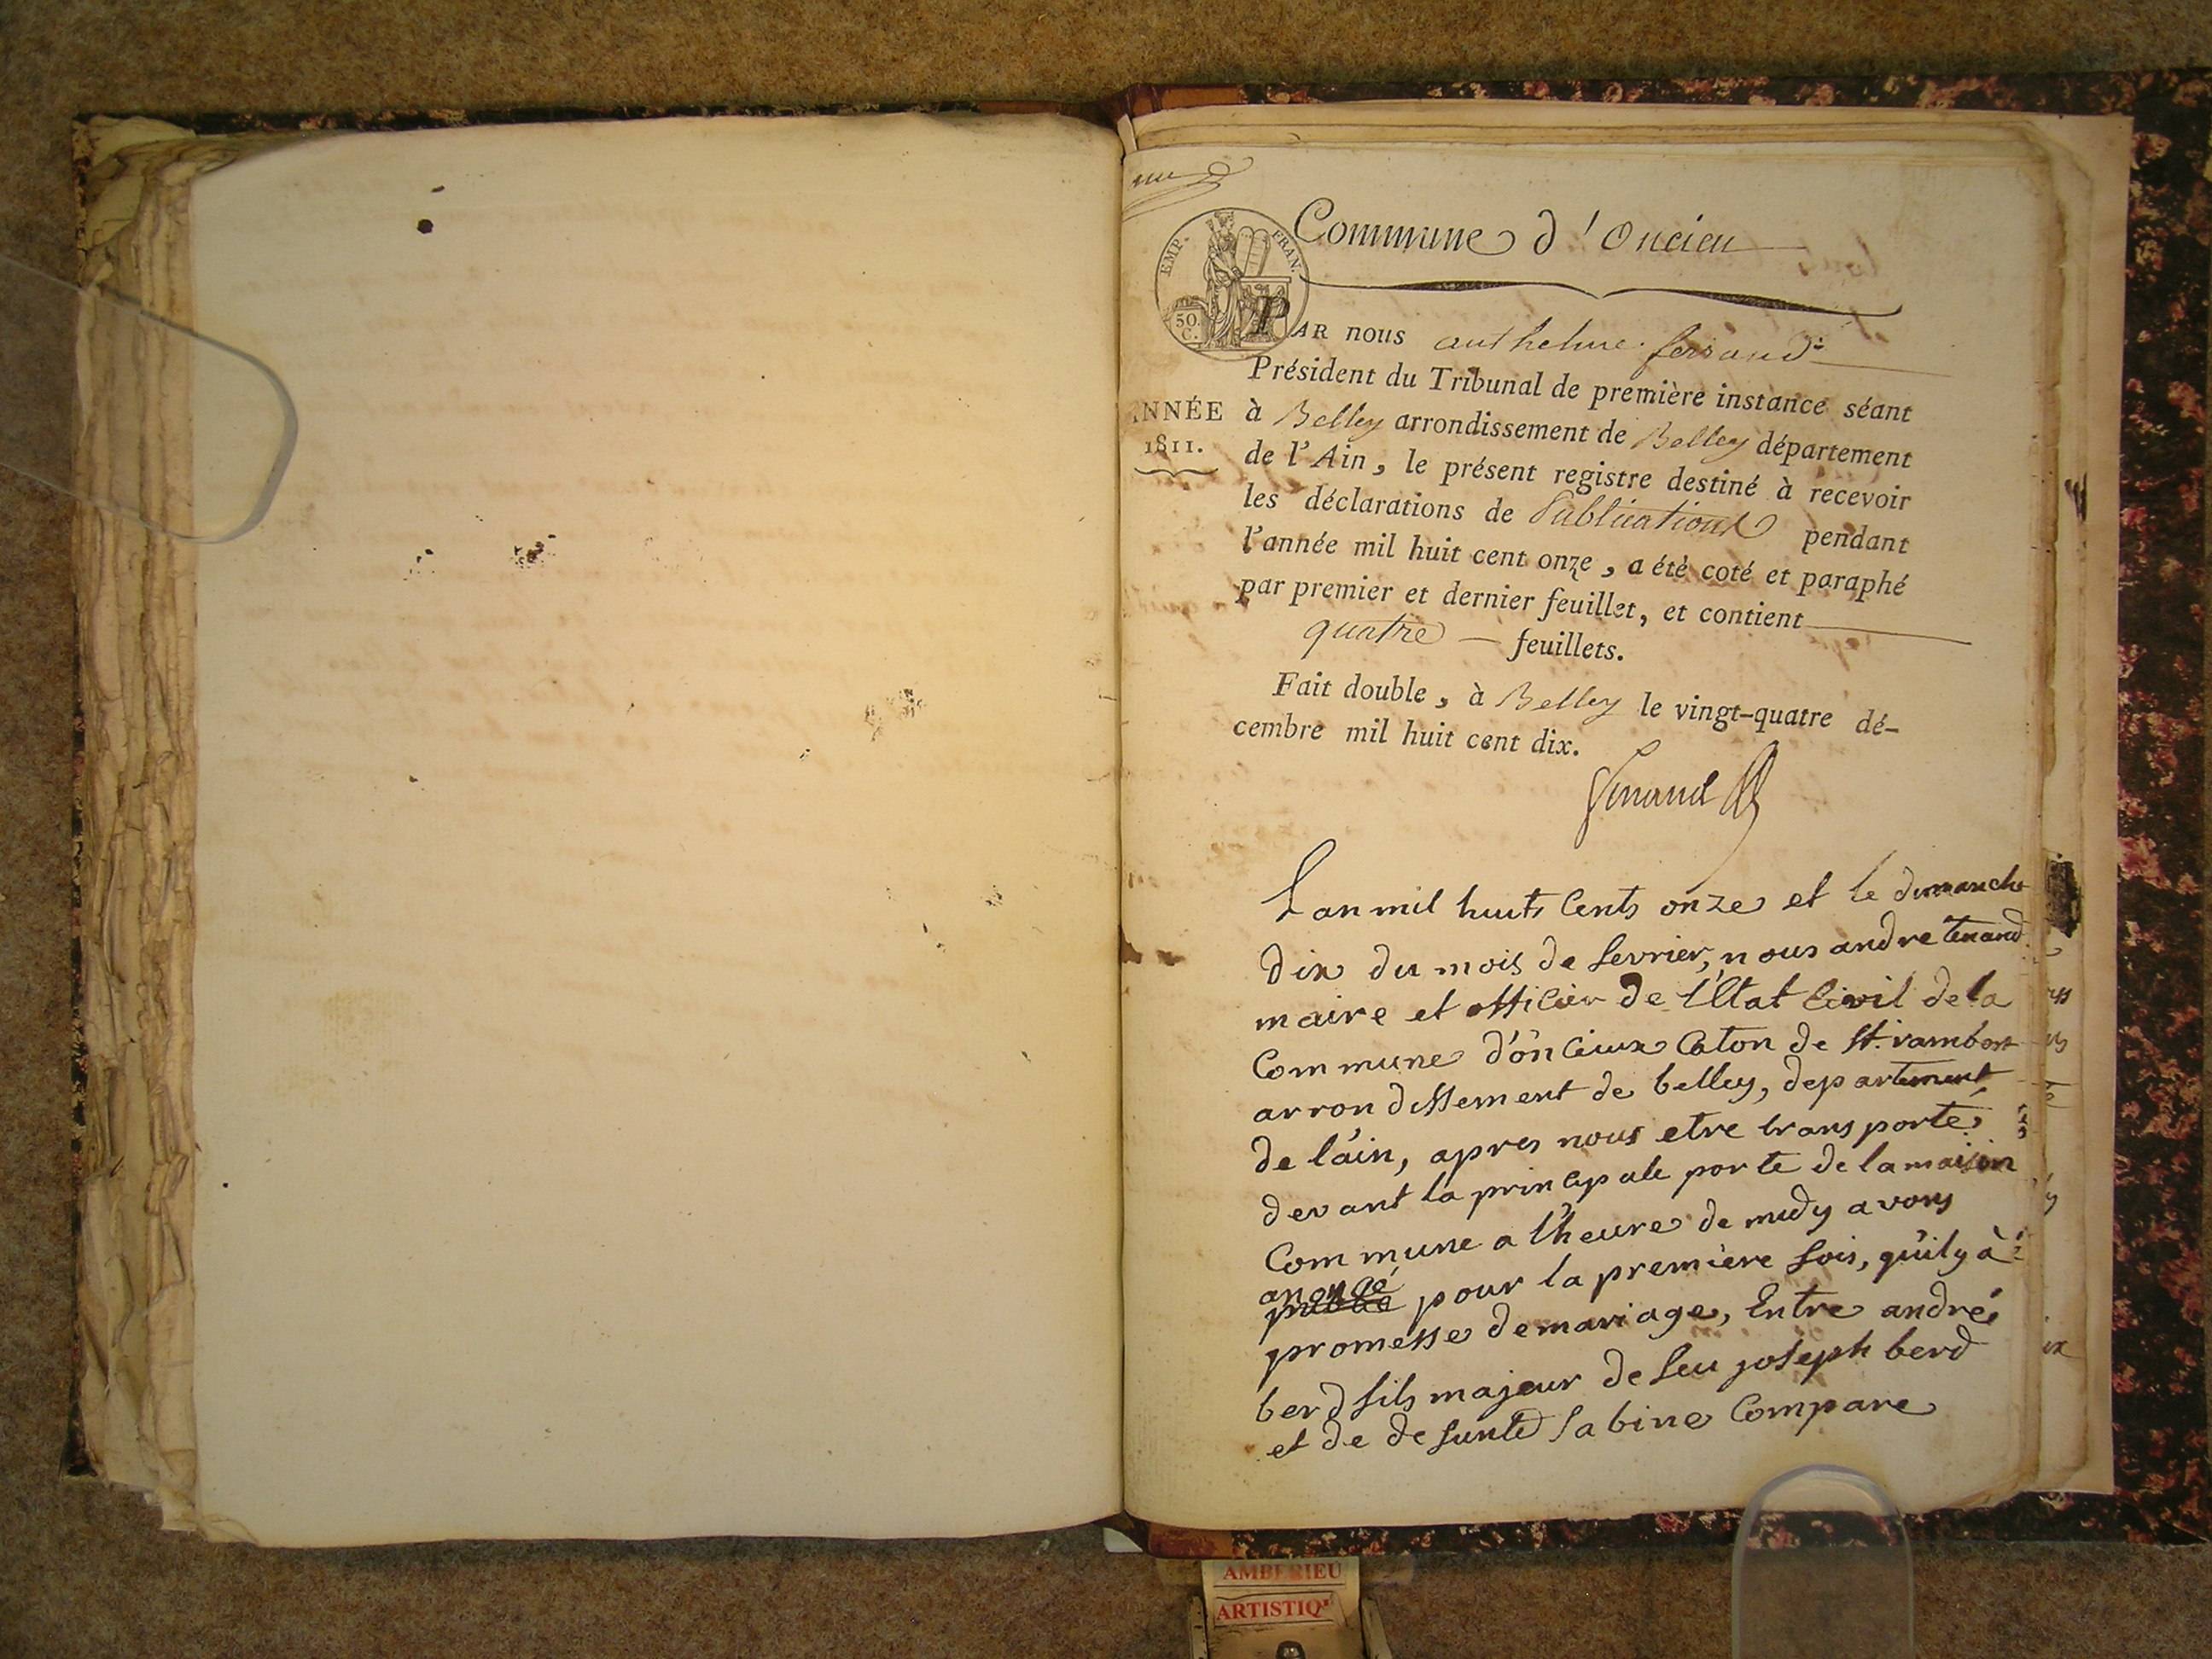 Commune d'Oncieu
EMP. FRAN.
50.
C.
PAR nous anthelme ferrand
Président du Tribunal de première instance séant
ANNÉE
1811.
à Belley arrondissement de Belley département
de l'Ain, le présent registre destiné à recevoir
les déclarations de Publications pendant
l'année mil huit cent onze, a été coté et paraphé
par premier et dernier feuillet, et contient
quatre feuillets.
Fait double, à Belley le vingt-quatre dé-
cembre mil huit cent dix.
Lan mil huits Cents onze et le dimanche
dix du mois de fevrier, nous andre tenand
maire et officier de l'Etat Civil de la
Commune d'onçieux Caton de St. rambert
arrondissement de belley, departement
de l'ain, apres nous etre transporté
devant la principale porte de la maison
Commune a l'heure de midy avons
anoncé
publié pour la première fois, qu'il y à
promesse de mariage, Entre andré
berd fils majeur de feu joseph berd
et de defunte Sabine Compare
AMBERIEU
ARTISTIQ